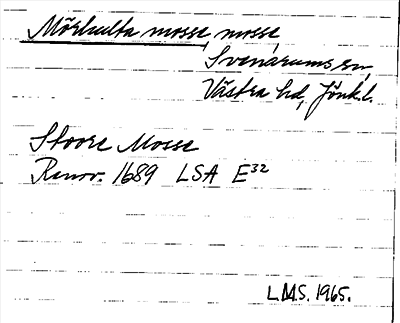 Mörhulta mosse, mosse,
Svenarums sn,
Västra hd, Jönk.l.
Stoore Mosse
Renov. 1689 LSA E32
L.M.S. 1965.